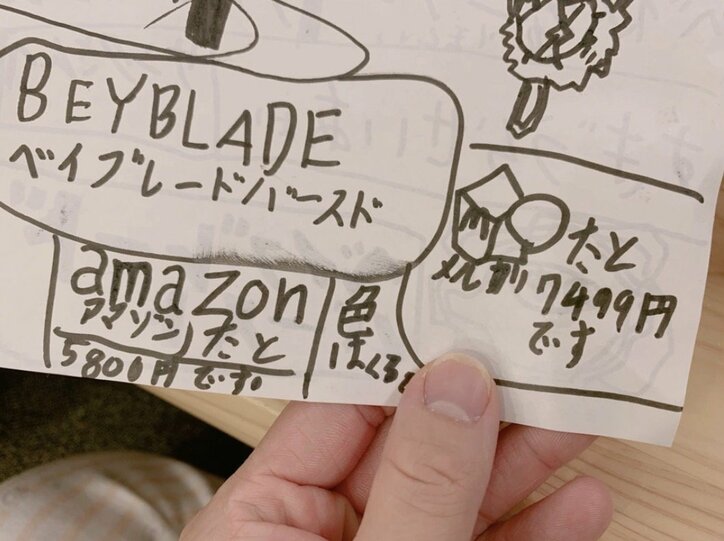 BEYBLADE
ベイブレードバースド
amazon
アマゾン だと
5800円 です
色
はくろ
だと
メルカリ 7499円
です